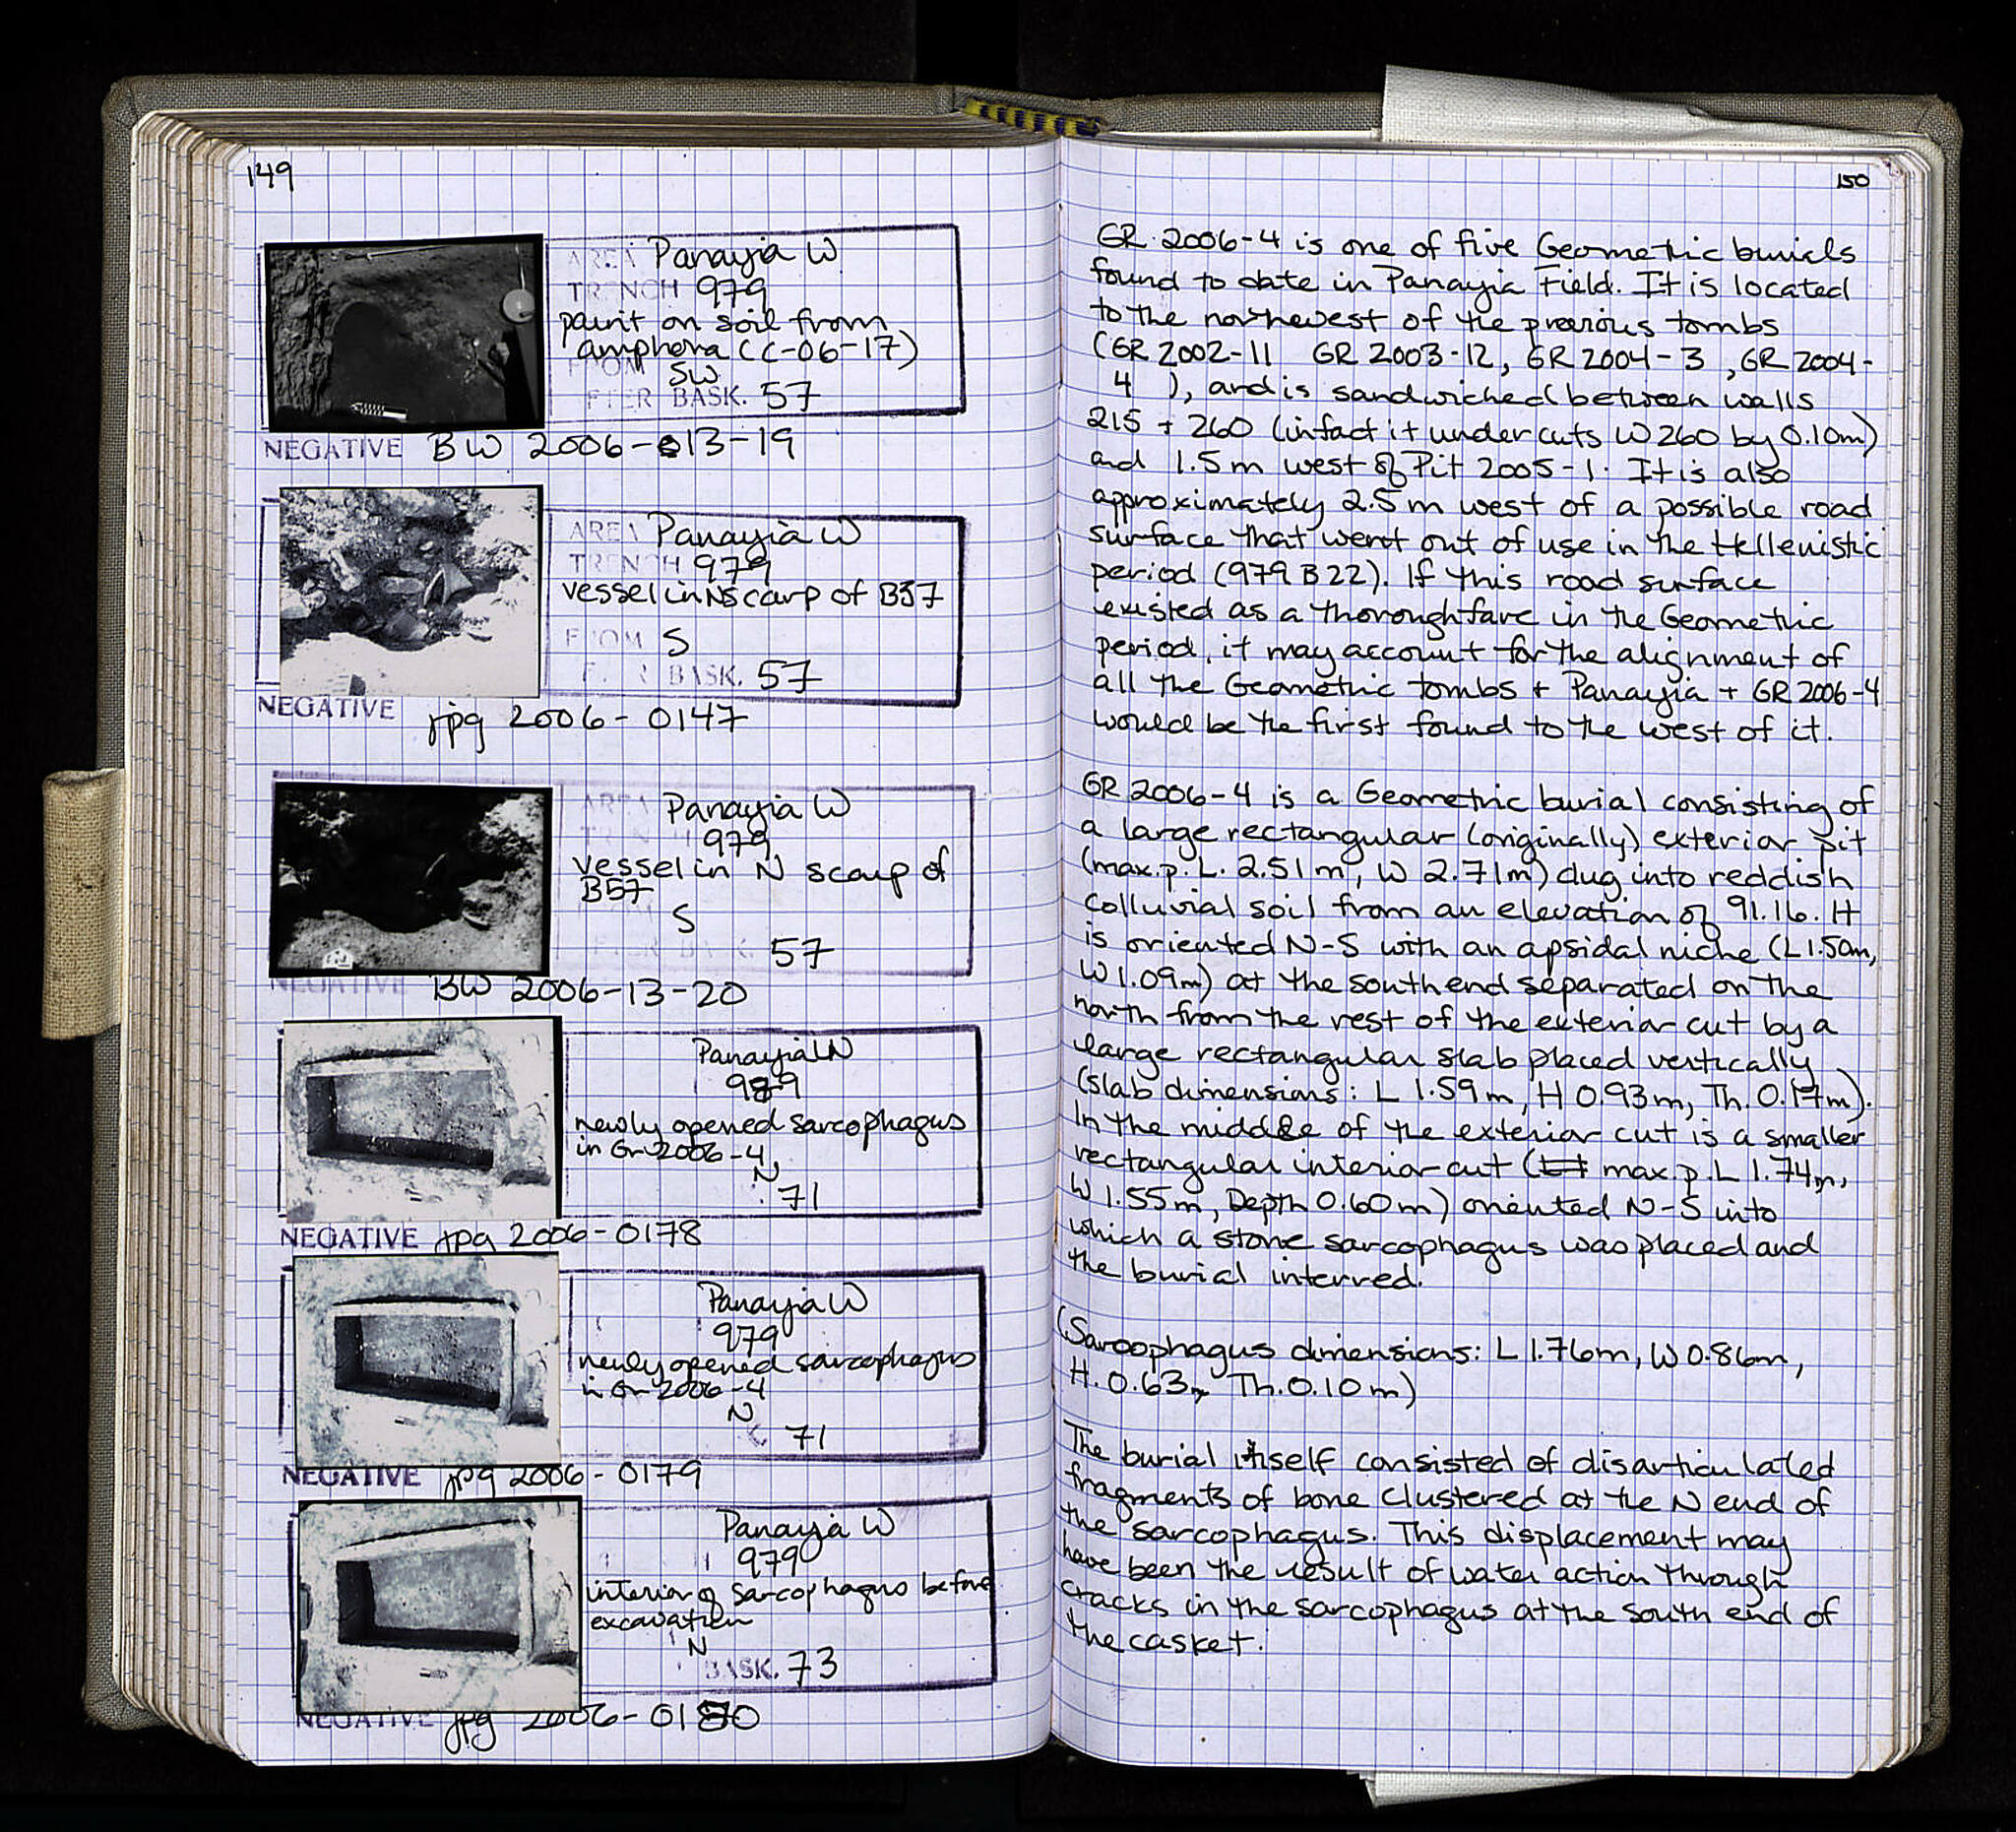 149
AREA Panayia W
TRENCH 979
paint on soil from
amphora (C-06-17)
FROM SW
AFTER BASK. 57
NEGATIVE BW 2006-013-19
AREA Panayia W
TRENCH 979
vessel in N scarp of B57
FROM S
BASK. 57
NEGATIVE jpg 2006-0147
AREA Panayia W
979
vessel in N scarp of
B57
S
AFTER BASK. 57
NEGATIVE BW 2006-13-20
Panayia W
979
newly opened sarcophagus
in Gr 2006-4
N
71
NEGATIVE jpg 2006-0178
Panayia W
979
newly opened sarcophagus
in Gr 2006-4
N
71
NEGATIVE jpg 2006-0179
Panayia W
979
interior of sarcophagus before
excavation
N
BASK. 73
NEGATIVE jpg 2006-0180
150
GR 2006-4 is one of five Geometric burials
found to date in Panayia Field. It is located
to the northwest of the previous tombs
(GR 2002-11 GR 2003-12, GR 2004-3, GR 2004-
4 ), and is sandwiched between walls
215 + 260 (in fact it undercuts W260 by 0.10m)
and 1.5m west of Pit 2005-1. It is also
approximately 2.5m west of a possible road
surface that went out of use in the Hellenistic
period (979 B22). If this road surface
existed as a thoroughfare in the Geometric
period, it may account for the alignment of
all the Geometric tombs + Panayia + GR 2006-4
would be the first found to the west of it.
GR 2006-4 is a Geometric burial consisting of
a large rectangular (originally) exterior pit
(max.p. L. 2.51m, W 2.71m) dug into reddish
colluvial soil from an elevation of 91.16. It
is oriented N-S with an apsidal niche (L1.50m,
W1.09m) at the south end separated on the
north from the rest of the exterior cut by a
large rectangular slab placed vertically
(slab dimensions: L 1.59m, H 0.93m, Th. 0.17m).
In the middle of the exterior cut is a smaller
rectangular interior cut (max.p. L 1.74m,
W 1.55m, Depth 0.60m) oriented N-S into
which a stone sarcophagus was placed and
the burial interred.
(Sarcophagus dimensions: L 1.76m, W 0.86m,
H. 0.63m Th. 0.10m)
The burial itself consisted of disarticulated
fragments of bone clustered at the N end of
the sarcophagus. This displacement may
have been the result of water action through
cracks in the sarcophagus at the south end of
the casket.